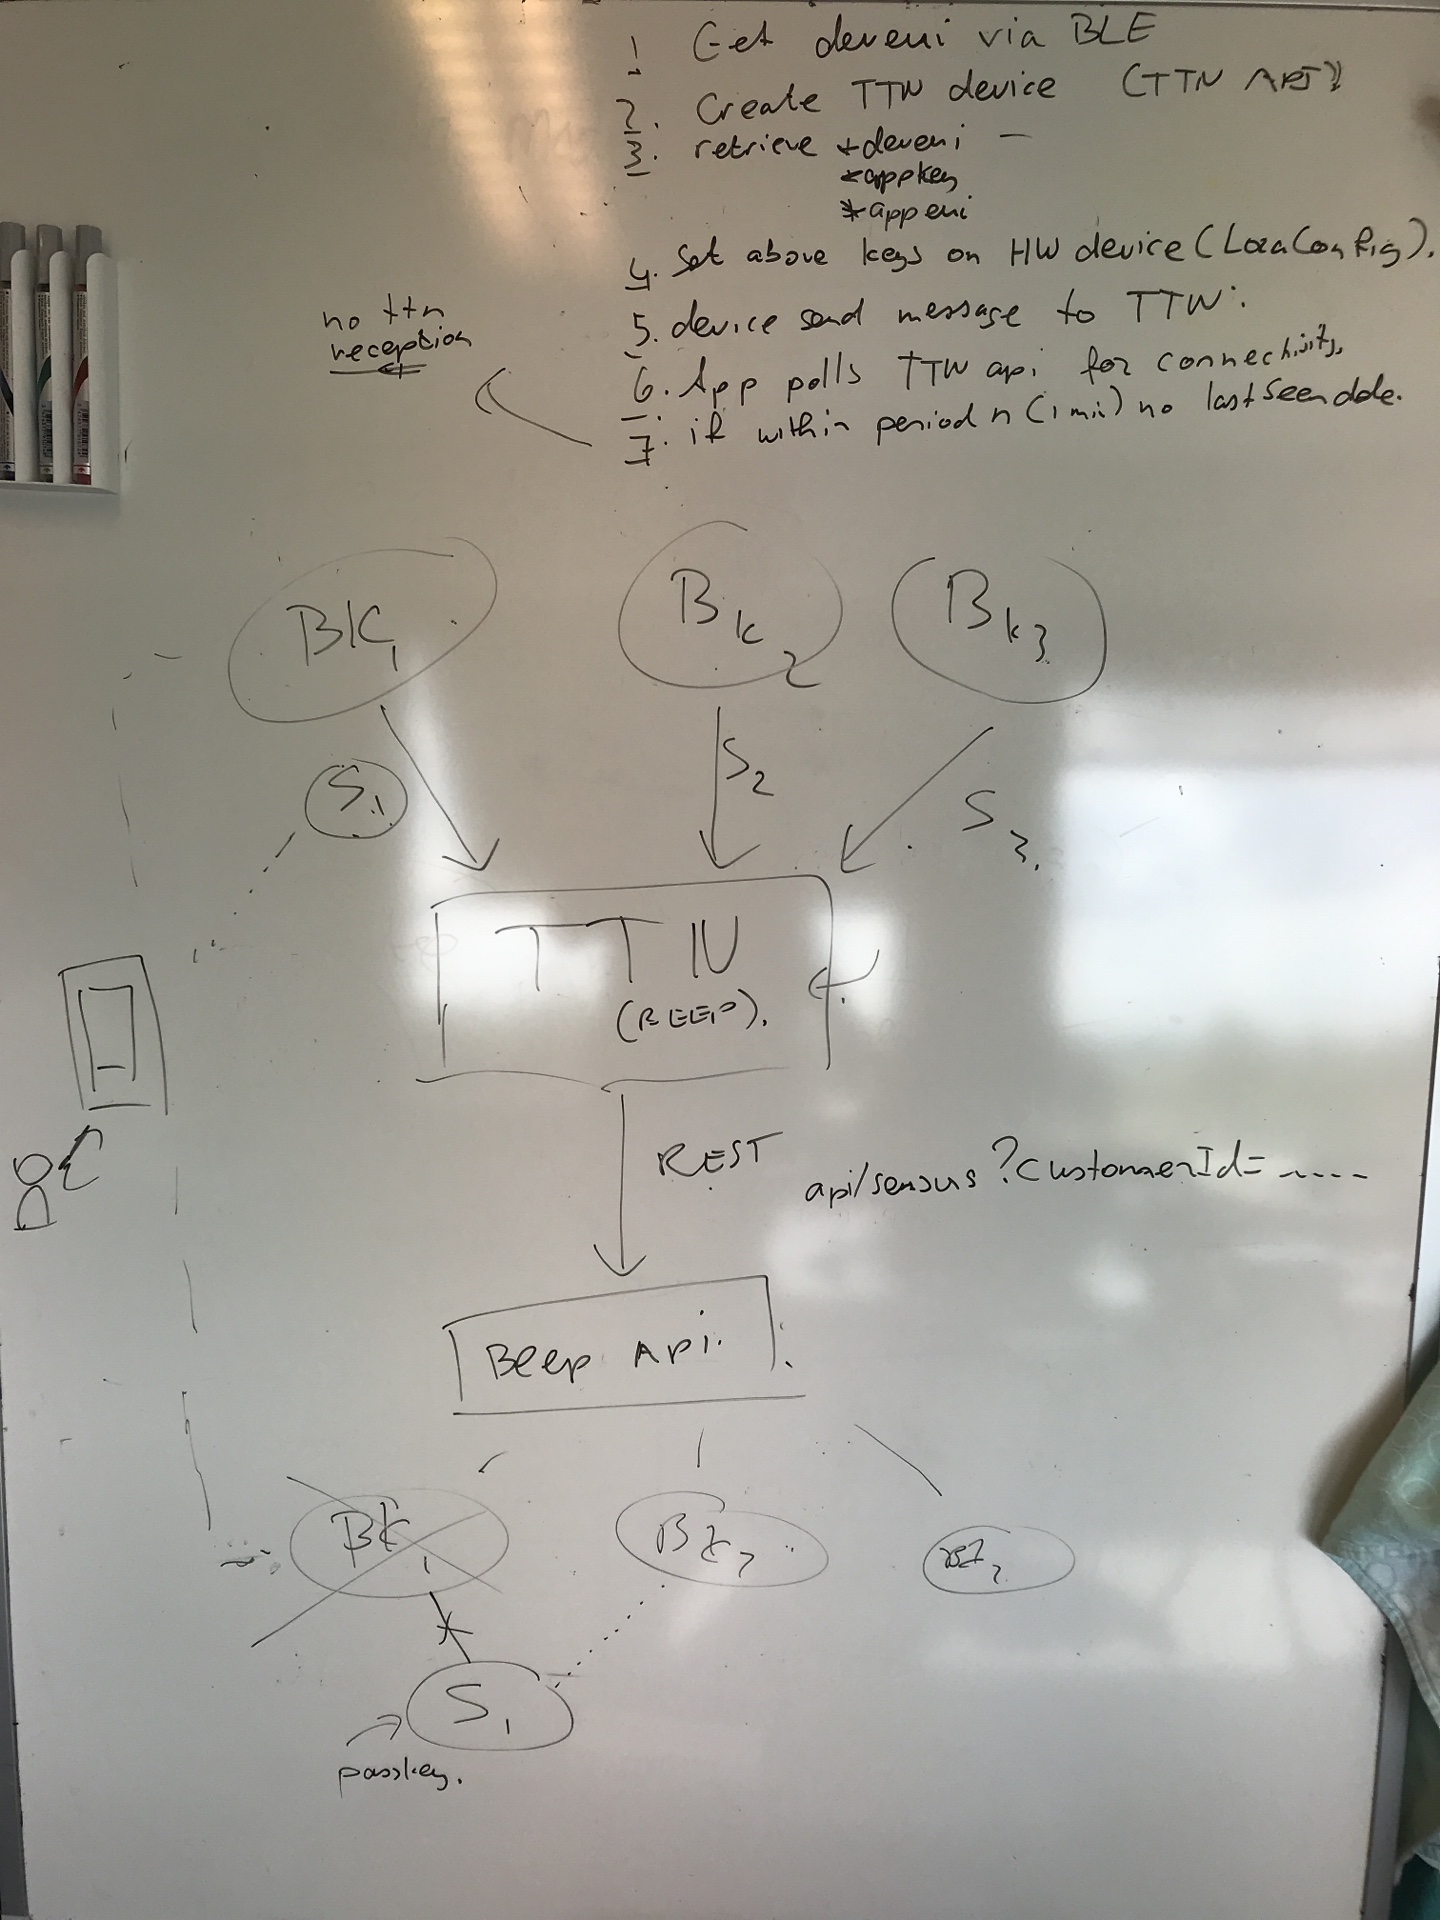 1 Get deveui via BLE
2. Create TTN device (TTN API)
3. retrieve *deveui —
*appkey
*appeui
4. Set above keys on HW device (LoraConfig).
5. device send message to TTN.
6. App polls TTN api for connectivity
7. if within period n (1 min) no lastSeen date.
no ttn
reception
BK1
BK2
BK3
S1
S2
S3.
TTN
(BEEP).
REST
api/sensors?customerId= -----
Beep Api.
BK1
BK2
S1
passkey.